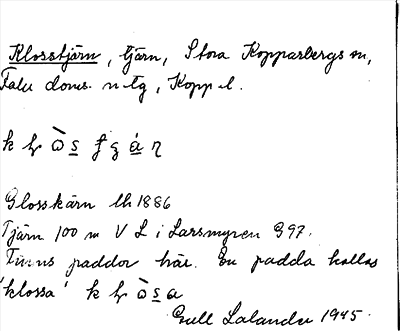 Klosstjärn, tjärn, Stora Kopparbergs sn,
Falu doms. n tg, Kopp. l.
Glosskärn lh 1886
Tjärn 100 m V L i Larsmyren G97.
Finns paddor här. En padda kallas
'klossa'
Gull Lalander 1945.